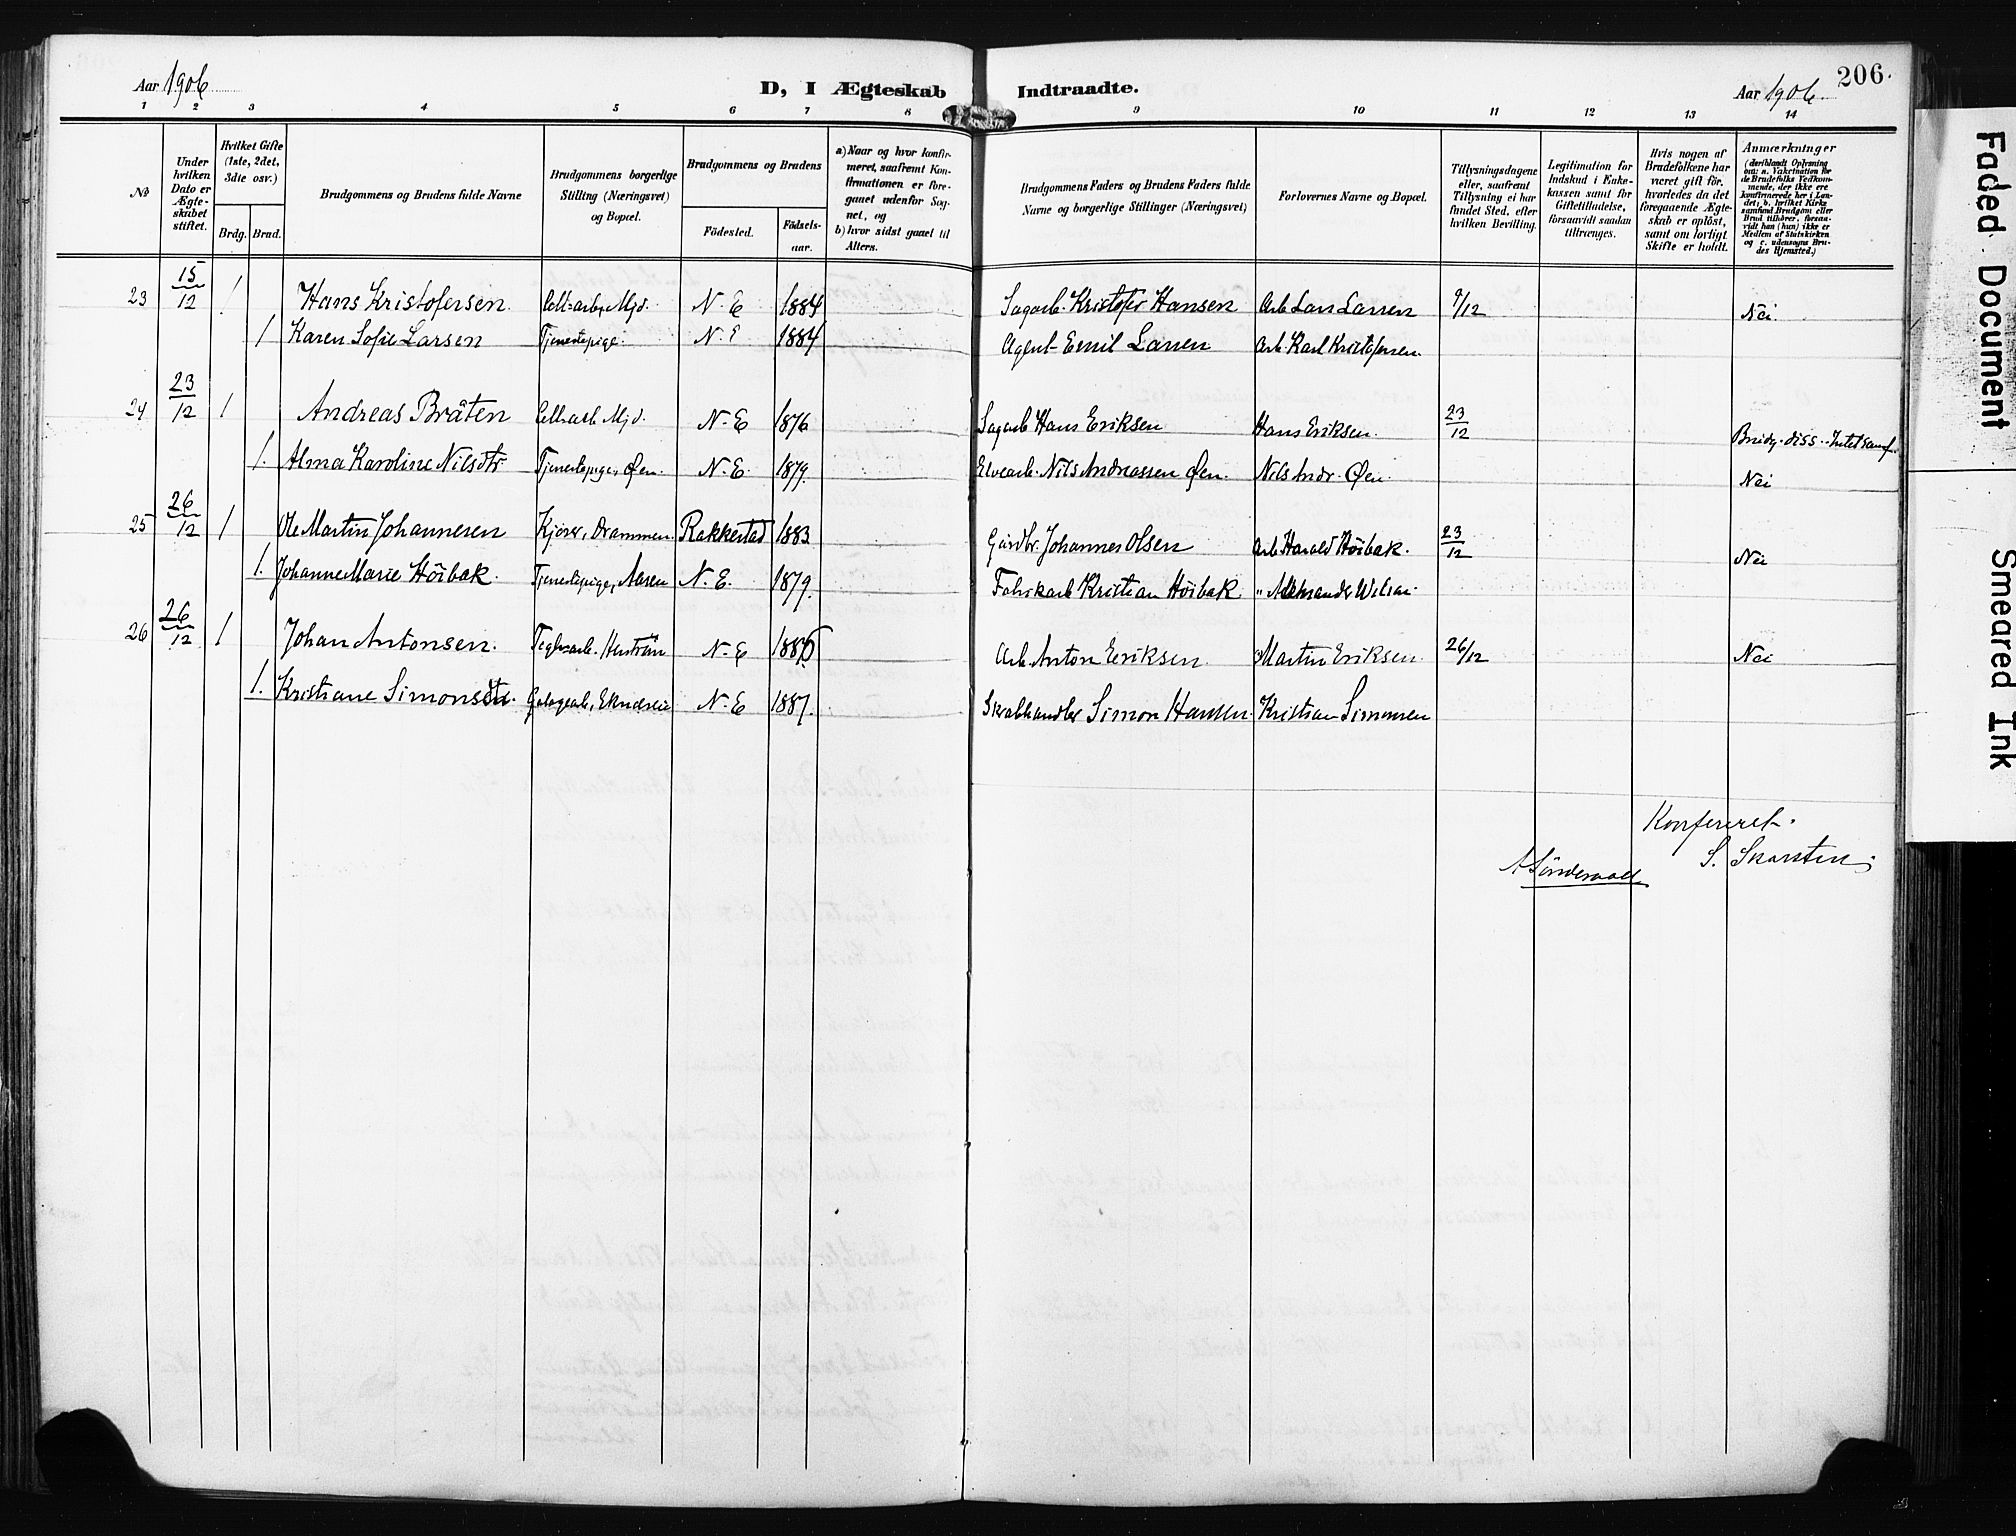 Aar 1906
D, I Ægteskab Indtraadte.
Aar 1906.
206.
1 2 3 4 5 6 7 8 9 10 11 12 13 14
No
Under hvilken Dato er Ægteskabet stiftet.
Hvilket Gifte (1ste, 2det, 3die osv.)
Brdg. Brud.
Brudgommens og Brudens fulde Navne
Brudgommens borgerlige Stilling (Næringsvei) og Bopæl.
Brudgommens og Brudens
Födested.
Födselsaar.
a) Naar og hvor konfirmeret, saafremt Konfirmationen er foregaaet udenfor Sognet, og
b) hvor sidst gaaet til Alters.
Brudgommens Faders og Brudens Faders fulde Navne og borgerlige Stillinger (Næringsvei)
Forlovernes Navne og Bopæl.
Tillysningsdagene eller, saafremt Tillysning ei har fundet Sted, efter hvilken Bevilling.
Legitimation for Indskud i Enkekassen samt for Giftetilladelse, forsaavidt saadan tiltrænges.
Hvis nogen af Brudefolkene har været gift för, hvorledes da det foregaaende Ægteskab er oplöst, samt om lovligt Skifte er holdt.
Anmærkninger
(deriblandt Oplysning om: a. Vakcination for de Brudefolks Vedkommende, der ikke ere konfirmerede her i Landet; b. hvilket Kirkesamfund Brudgom eller Brud tilhörer, forsaavidt han (hun) ikke er Medlem af Statskirken og c. udensogns Brudes Hjemsted.)
23 15/12 1 Hans Kristofersen. Mjd. N. E 1884 Sagarb. Kristofer Hansen Arb Lars Larsen 9/12 Nei.
1 Karen Sofie Larsen Tjenestepige. N. E 1884 Agent Emil Larsen Arb. Karl Kristofersen.
24 23/12 1 Andreas Bråten Mjd. N. E 1876 Sagarb Hans Eriksen Hans Eriksen. 23/12 Brudg. diss. Intet samf.
1. Alma Karoline Nilsdtr Tjenestepige, Øen. N. E. 1879. Elvearb. Nils Andreassen Øen. Nils Andr. Øen. Nei
25 26/12 1 Ole Martin Johannesen Kjörer, Drammen. Rakkestad 1883. Gårdbr. Johannes Olsen Arb Harald Höibak. 23/12 Nei
1. Johanne Marie Höibak. Tjenestepige, Aasen N. E. 1879. Fabrikarb Kristian Höibak. "
26 26/12 1 Johan Antonsen. N. E Arb. Anton Eriksen. Martin Eriksen. 26/12 Nei
1. Kristiane N. E 1887. Simon Hansen. Kristian Simonsen
Konfereret.
S. Skarsten.
Faded Document
Smeared Ink